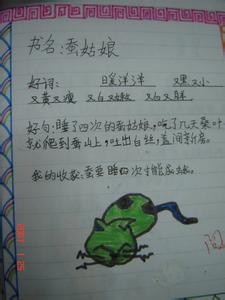 书名:蚕姑娘
好词: 暖洋洋 又黑又小
又黄又瘦 又白又嫩 又白又胖
好句:睡了四次的蚕姑娘,吃了几天桑叶
就爬到蚕山上,吐出白丝,盖间新房。
我的收获:蚕要睡四次才能
阅
2007 1 25